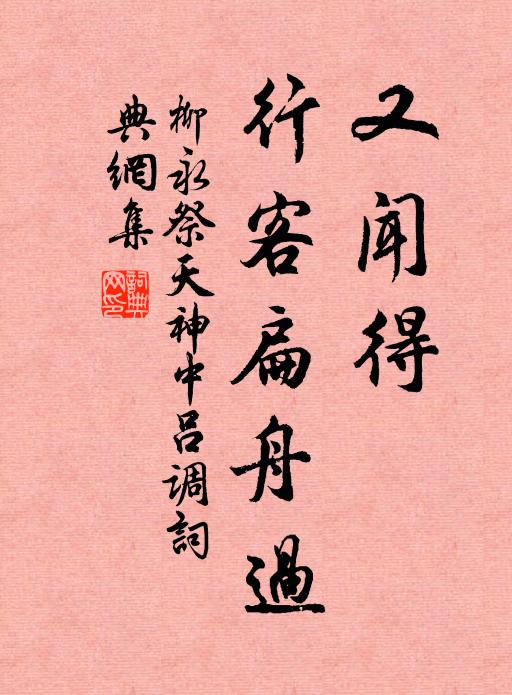 又闻得
行客扁舟過
柳永祭天神中吕调詞
典網集
詞典網印